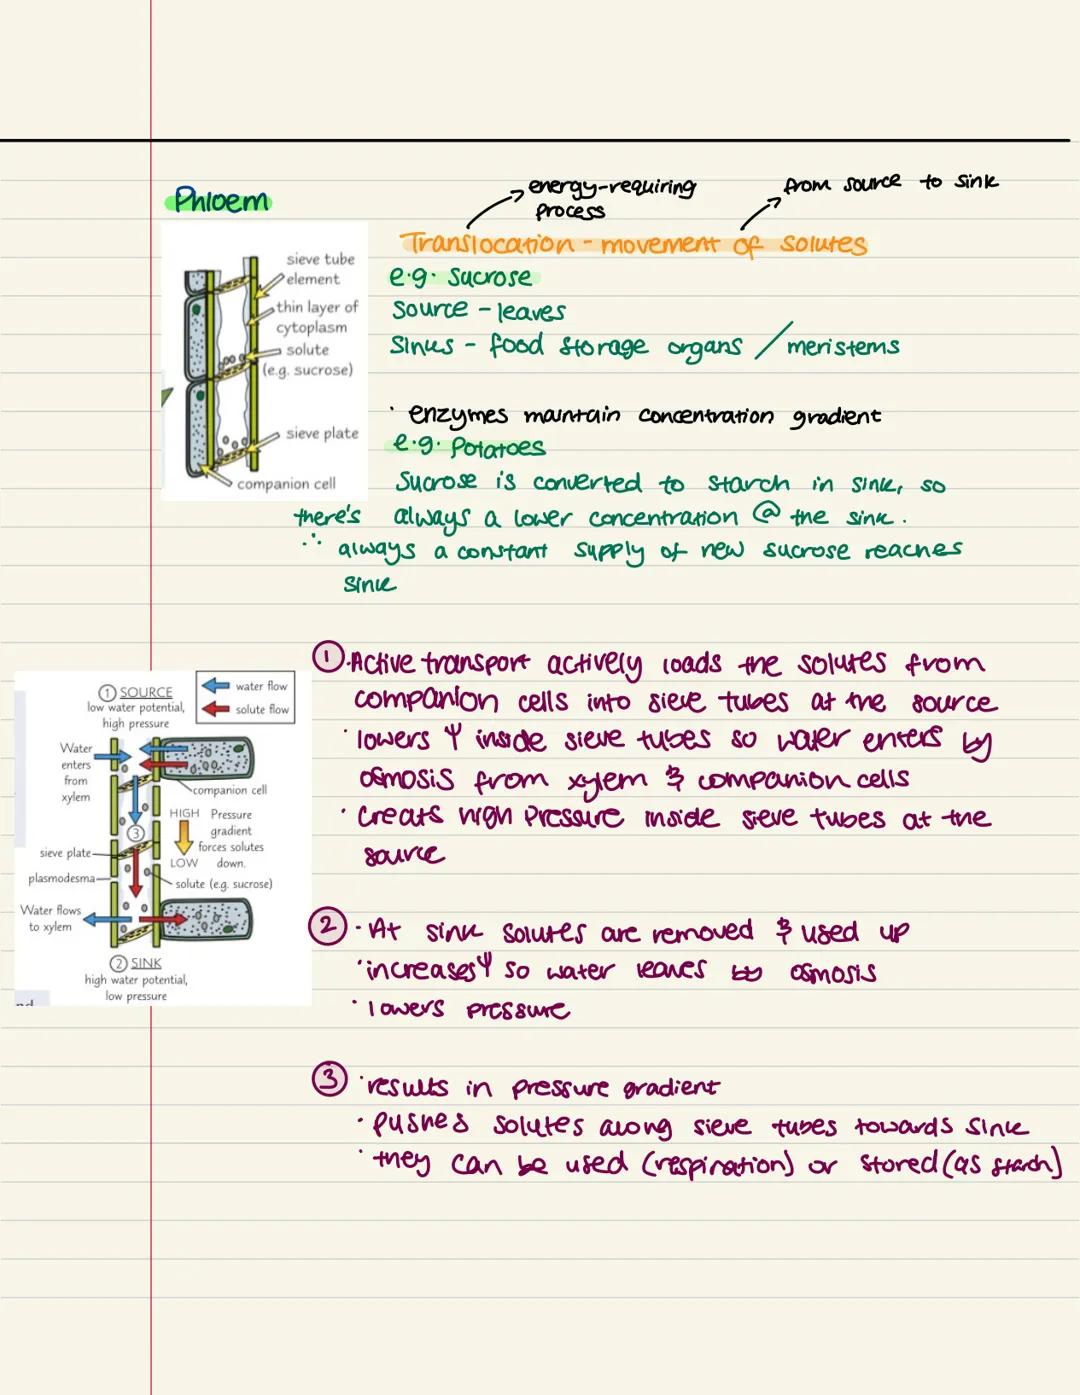 Phloem
energy-requiring
process
from source to sink
Translocation - movement of solutes
e.g. Sucrose
Source - leaves
Sinks - food storage organs / meristems
· enzymes maintain concentration gradient
e.g. Potatoes
Sucrose is converted to starch in sink, so
there's always a lower concentration @ the sink.
∴ always a constant supply of new sucrose reaches
sink
sieve tube
element
thin layer of
cytoplasm
solute
(e.g. sucrose)
sieve plate
companion cell
① · Active transport actively loads the solutes from
companion cells into sieve tubes at the source
· lowers Ψ inside sieve tubes so water enters by
osmosis from xylem & companion cells
· Creats high pressure inside sieve tubes at the
source
② · At sink solutes are removed & used up
· increases Ψ so water leaves by osmosis
· lowers pressure
③ · results in pressure gradient
· pushes solutes along sieve tubes towards sink
· they can be used (respiration) or stored (as starch)
① SOURCE
low water potential,
high pressure
water flow
solute flow
Water
enters
from
xylem
companion cell
HIGH
Pressure
gradient
forces solutes
down.
LOW
③
sieve plate
plasmodesma
solute (e.g. sucrose)
Water flows
to xylem
② SINK
high water potential,
low pressure